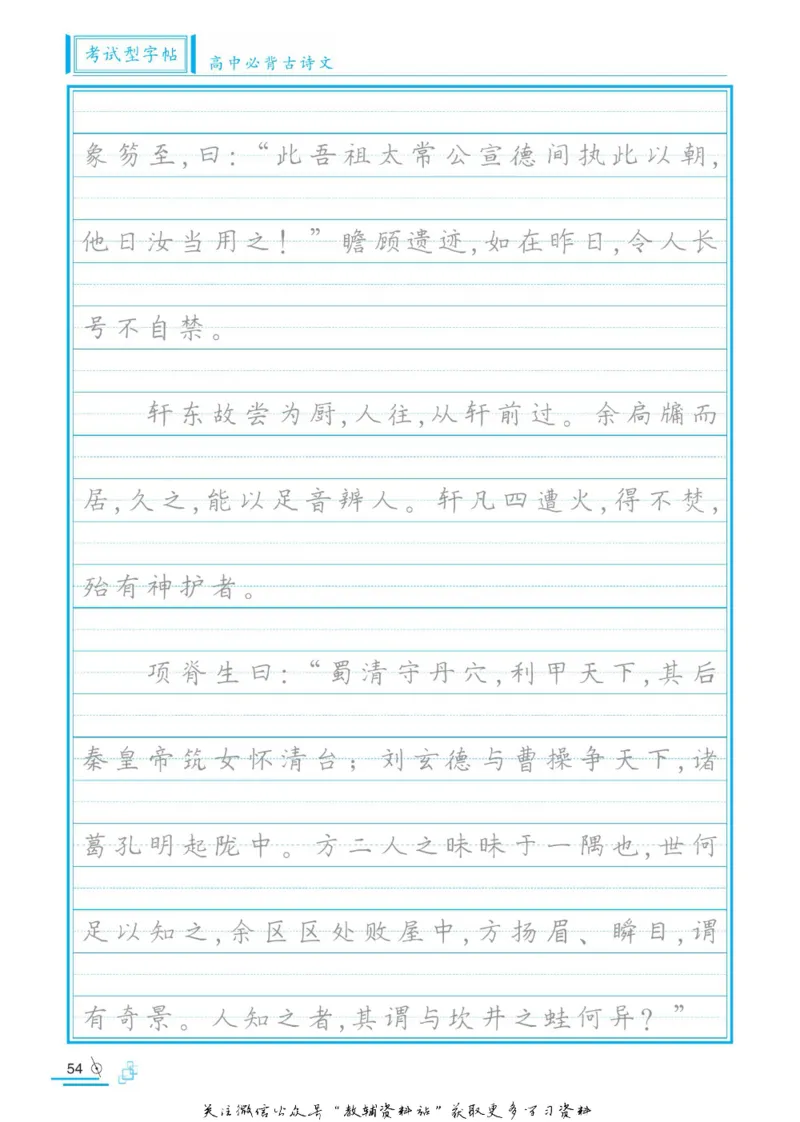 考试型字帖
高中必背古诗文
象笏至,曰:“此吾祖太常公宣德间执此以朝,
他日汝当用之!”瞻顾遗迹,如在昨日,令人长
号不自禁。
轩东故尝为厨,人往,从轩前过。余扃牖而
居,久之,能以足音辨人。轩凡四遭火,得不焚,
殆有神护者。
项脊生曰:“蜀清守丹穴,利甲天下,其后
秦皇帝筑女怀清台;刘玄德与曹操争天下,诸
葛孔明起陇中。方二人之昧昧于一隅也,世何
足以知之,余区区处败屋中,方扬眉、瞬目,谓
有奇景。人知之者,其谓与坎井之蛙何异?”
54
关注微信公众号“教辅资料站”获取更多学习资料